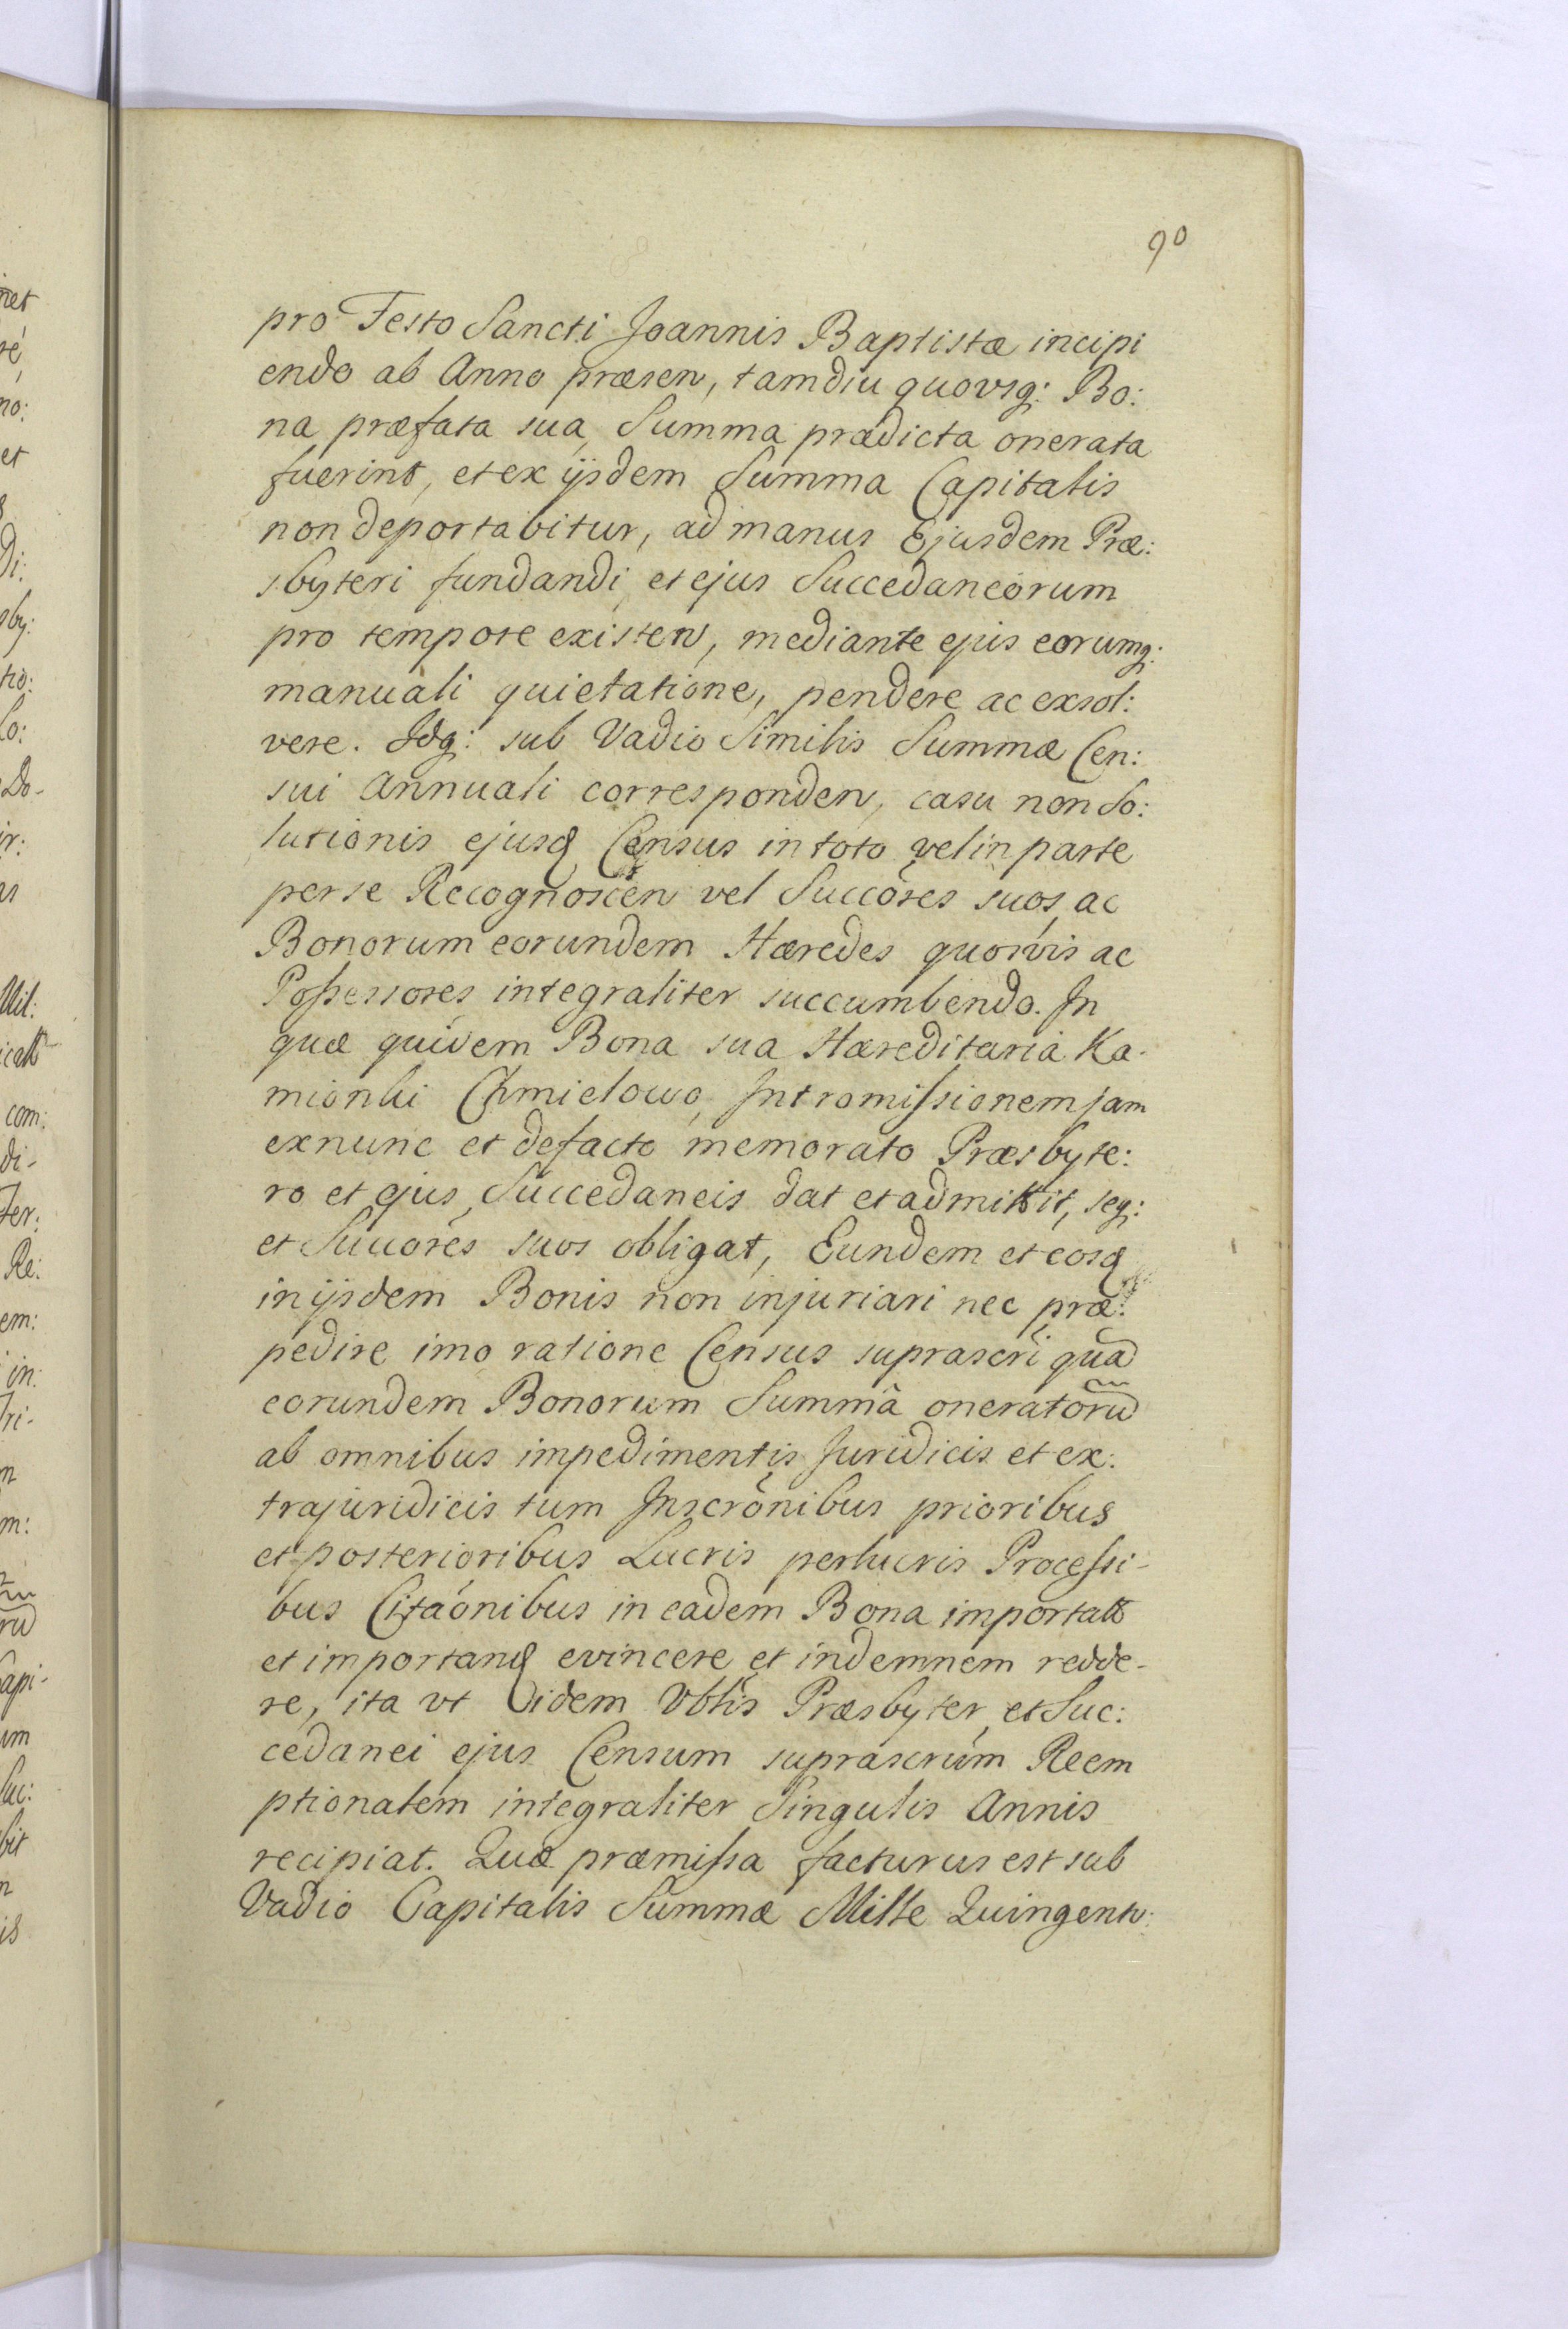 90
pro Festo Sancti Joannis Baptistæ incipi
endo ab Anno præsen, tamdiu quovsq: Bo:
na præfata sua Summa prædicta onerata
fuerint, et ex ijsdem Summa Capitalis
non deportabitur, ad manus Ejusdem Præ:
sbyteri fundandi et ejus Succedaneorum
pro tempore existen, mediante ejus eorumq:
manuali quietatione, pendere ac exsol:
vere. Idq: sub Vadio Similis Summæ Cen:
sui Annuali corresponden, casu non So:
lutionis ejusd Census in toto vel in parte
per se Recognoscen vel Succores suos ac
Bonorum eorundem Hæredes quosvis ac
Possessores integraliter succumbendo. In
quæ quidem Bona sua Hæreditaria Ka-
mionki Chmielowo Intromissionem jam
exnunc et defacto memorato Præsbyte:
ro et ejus Succedaneis dat et admittit, seq:
et Succores suos obligat, Eundem et eosd
in ijsdem Bonis non injuriari nec præ:
pedire imo ratione Census suprascri qua
eorundem Bonorum Summâ oneratoru
ab omnibus impedimentis Juridicis et ex:
trajuridicis tum Inscrõnibus prioribus
et posterioribus Lucris perlucris Processi-
bus Citaõnibus in eadem Bona importat
et importand evincere et indemnem redde-
re, ita vt idem Vblis Præsbyter et Suc:
cedanei ejus Censum suprascrum Reem
ptionalem integraliter Singulis Annis
recipiat. Quæ præmissa facturus est sub
Vadio Capitalis Summæ Mille Quingent: